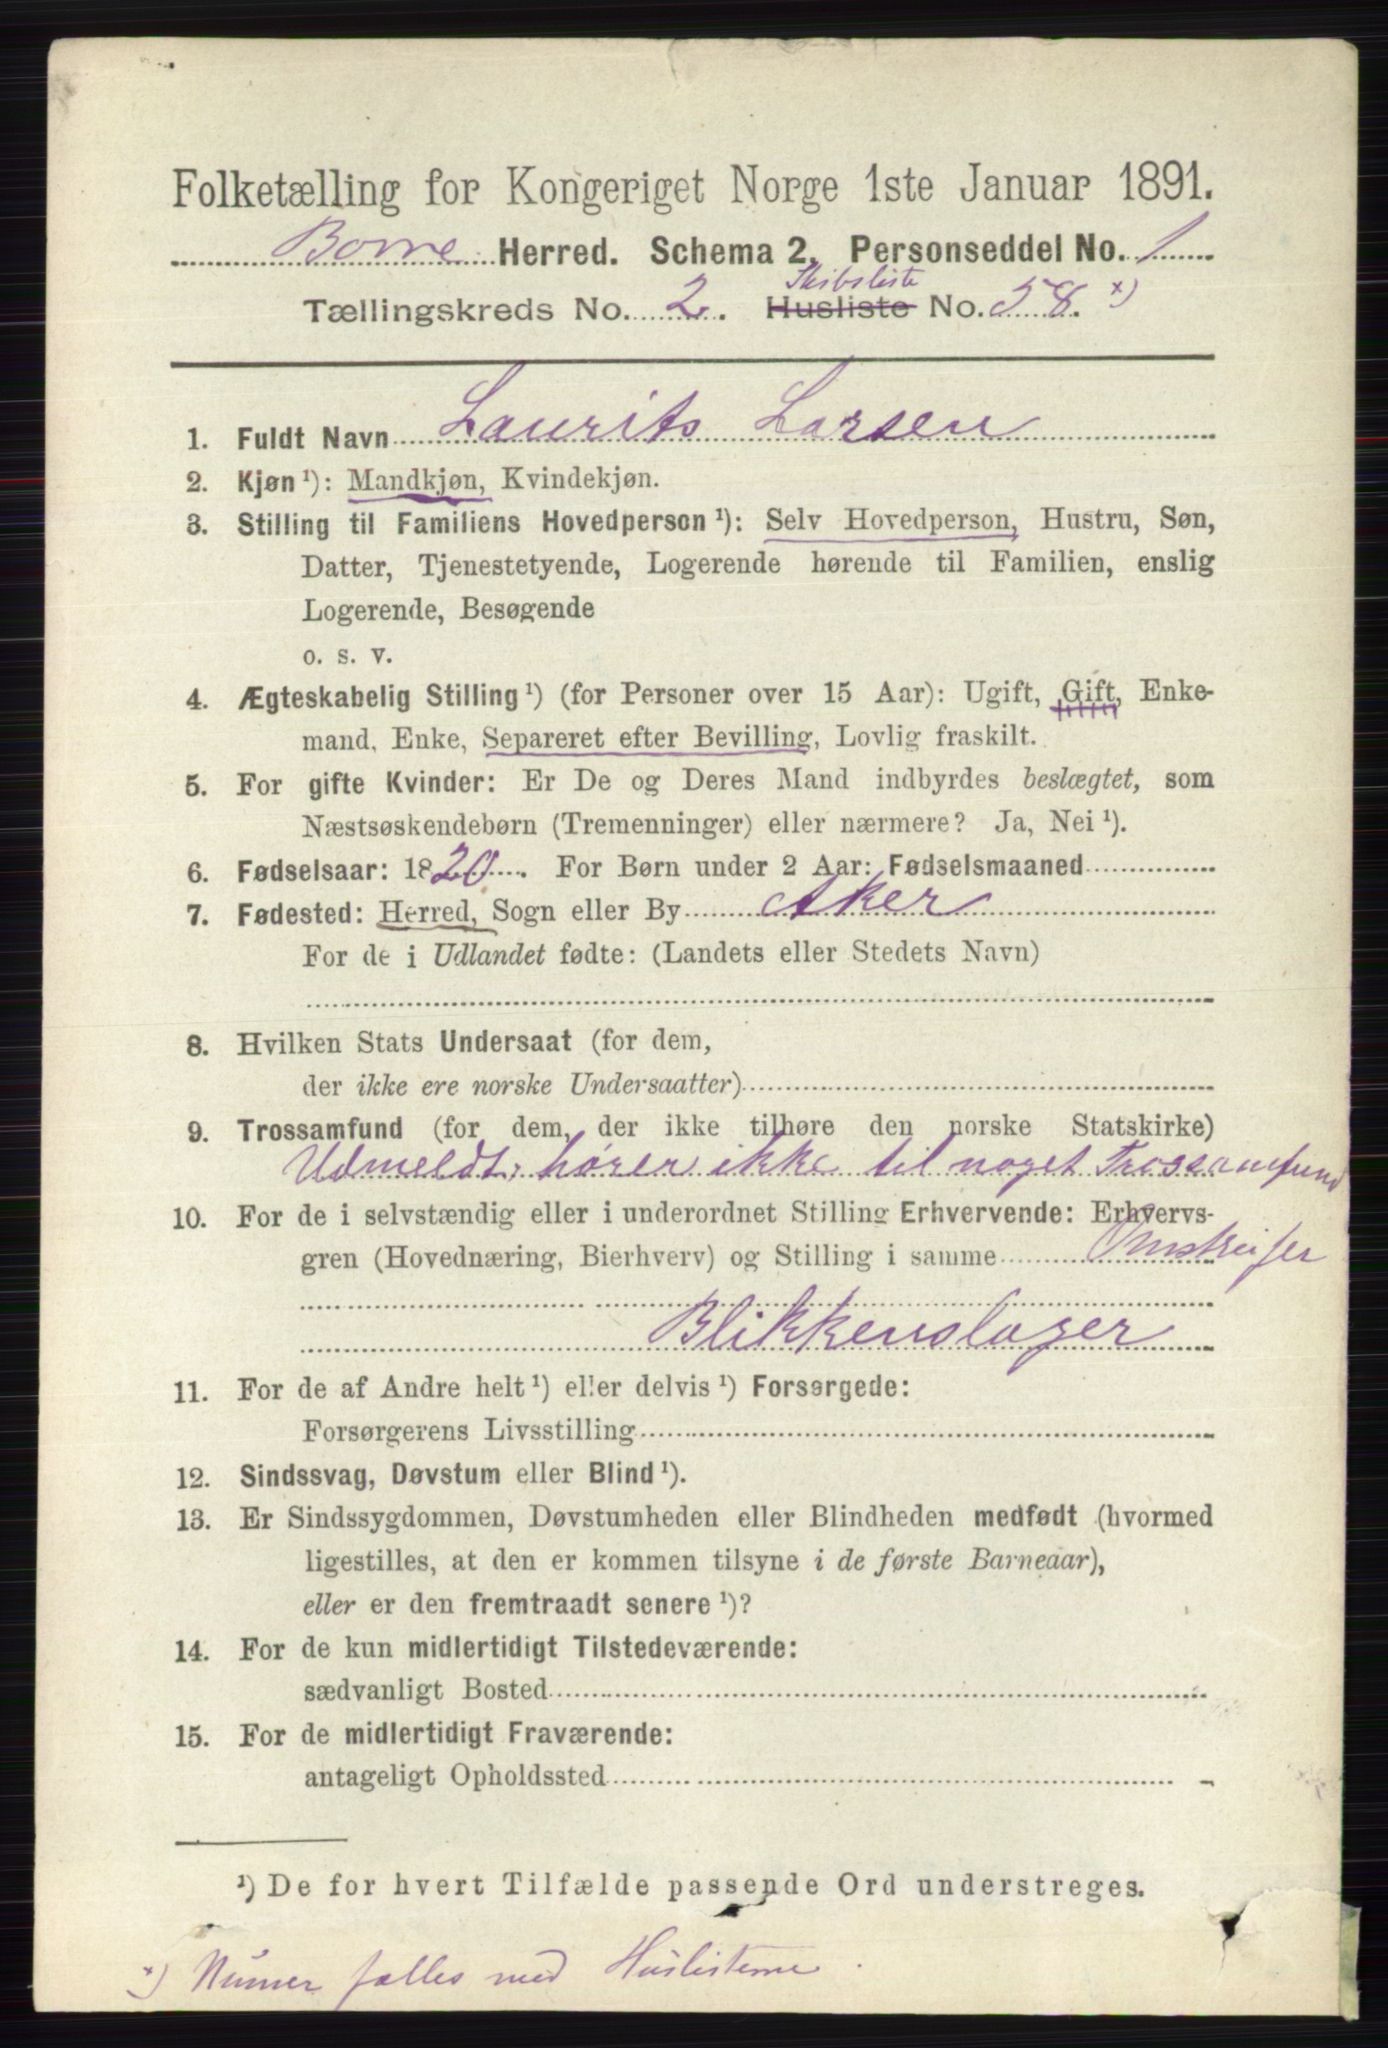 Folketælling for Kongeriget Norge 1ste Januar 1891.
Borre Herred. Schema 2. Personseddel No. 1
Skibsliste
Tællingskreds No. 2. Husliste No. 58. x)
1. Fuldt Navn Laurits Larsen
2. Kjøn ¹): Mandkjøn, Kvindekjøn.
3. Stilling til Familiens Hovedperson ¹): Selv Hovedperson, Hustru, Søn,
Datter, Tjenestetyende, Logerende hørende til Familien, enslig
Logerende, Besøgende
o. s. v.
4. Ægteskabelig Stilling ¹) (for Personer over 15 Aar): Ugift, Gift, Enke-
mand, Enke, Separeret efter Bevilling, Lovlig fraskilt.
5. For gifte Kvinder: Er De og Deres Mand indbyrdes beslægtet, som
Næstsøskendebørn (Tremenninger) eller nærmere? Ja, Nei ¹).
6. Fødselsaar: 1820. For Børn under 2 Aar: Fødselsmaaned
7. Fødested: Herred, Sogn eller By Aker
For de i Udlandet fødte: (Landets eller Stedets Navn)
8. Hvilken Stats Undersaat (for dem,
der ikke ere norske Undersaatter)
9. Trossamfund (for dem, der ikke tilhøre den norske Statskirke)
Udmeldt, hører ikke til noget Trossamfund
10. For de i selvstændig eller i underordnet Stilling Erhvervende: Erhvervs-
gren (Hovednæring, Bierhverv) og Stilling i samme Omstreifer
Blikkenslager
11. For de af Andre helt ¹) eller delvis ¹) Forsørgede:
Forsørgerens Livsstilling
12. Sindssvag, Døvstum eller Blind ¹).
13. Er Sindssygdommen, Døvstumheden eller Blindheden medfødt (hvormed
ligestilles, at den er kommen tilsyne i de første Barneaar),
eller er den fremtraadt senere ¹)?
14. For de kun midlertidigt Tilstedeværende:
sædvanligt Bosted
15. For de midlertidigt Fraværende:
antageligt Opholdssted
¹) De for hvert Tilfælde passende Ord understreges.
x) Numer fælles med Huslisterne.